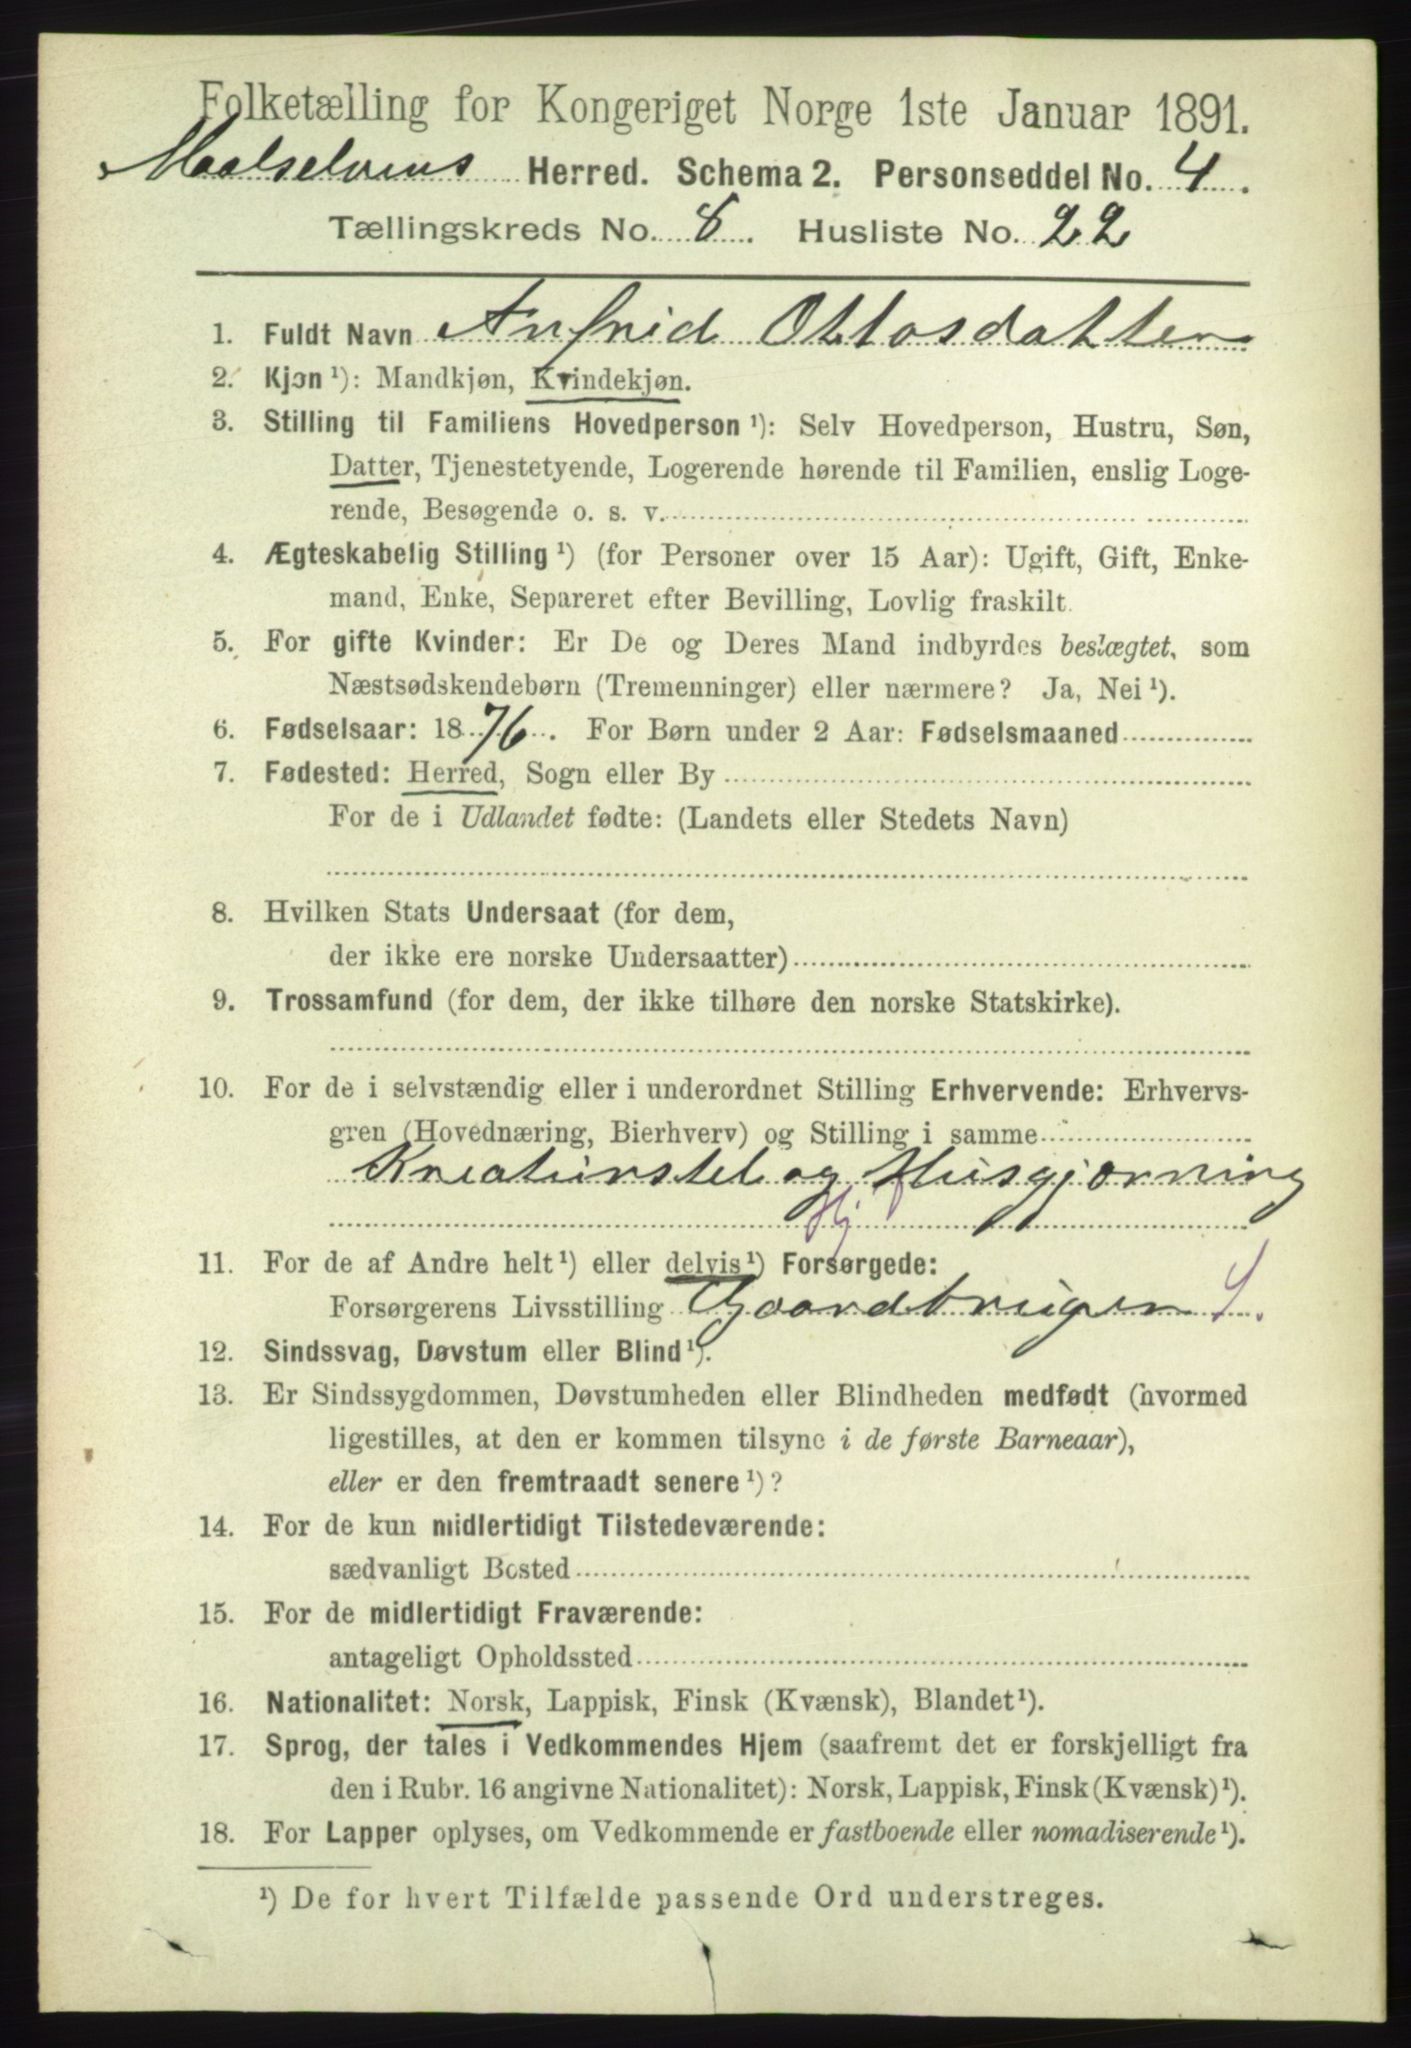 Folketælling for Kongeriget Norge 1ste Januar 1891.
Maalselvens Herred. Schema 2. Personseddel No. 4.
Tællingskreds No. 8. Husliste No. 22
1. Fuldt Navn Anfrid Ottosdatter
2. Kjøn ¹): Mandkjøn, Kvindekjøn.
3. Stilling til Familiens Hovedperson ¹): Selv Hovedperson, Hustru, Søn,
Datter, Tjenestetyende, Logerende hørende til Familien, enslig Loge-
rende, Besøgende o. s. v.
4. Ægteskabelig Stilling ¹) (for Personer over 15 Aar): Ugift, Gift, Enke-
mand, Enke, Separeret efter Bevilling, Lovlig fraskilt.
5. For gifte Kvinder: Er De og Deres Mand indbyrdes beslægtet, som
Næstsødskendebørn (Tremenninger) eller nærmere? Ja, Nei ¹).
6. Fødselsaar: 1876. For Børn under 2 Aar: Fødselsmaaned
7. Fødested: Herred, Sogn eller By
For de i Udlandet fødte: (Landets eller Stedets Navn)
8. Hvilken Stats Undersaat (for dem,
der ikke ere norske Undersaatter)
9. Trossamfund (for dem, der ikke tilhøre den norske Statskirke).
10. For de i selvstændig eller i underordnet Stilling Erhvervende: Erhvervs-
gren (Hovednæring, Bierhverv) og Stilling i samme
Kreaturstel og Husgjørning
Hj
11. For de af Andre helt ¹) eller delvis ¹) Forsørgede:
Forsørgerens Livsstilling Gaardbruger
12. Sindssvag, Døvstum eller Blind ¹).
13. Er Sindssygdommen, Døvstumheden eller Blindheden medfødt (hvormed
ligestilles, at den er kommen tilsyne i de første Barneaar),
eller er den fremtraadt senere ¹)?
14. For de kun midlertidigt Tilstedeværende:
sædvanligt Bosted
15. For de midlertidigt Fraværende:
antageligt Opholdssted
16. Nationalitet: Norsk, Lappisk, Finsk (Kvænsk), Blandet ¹).
17. Sprog, der tales i Vedkommendes Hjem (saafremt det er forskjelligt fra
den i Rubr. 16 angivne Nationalitet): Norsk, Lappisk, Finsk (Kvænsk) ¹).
18. For Lapper oplyses, om Vedkommende er fastboende eller nomadiserende ¹).
¹) De for hvert Tilfælde passende Ord understreges.